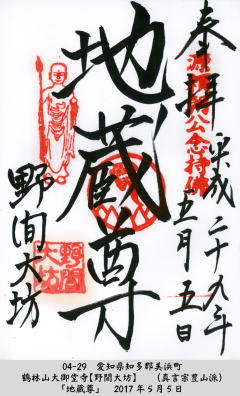 奉拝
平成二十九年
五月五日
地蔵尊
野间大坊
野間
大坊
04-29 愛知県知多郡美浜町
鶴林山大御堂寺【野間大坊】 (真言宗豊山派)
「地蔵尊」 2017年5月5日